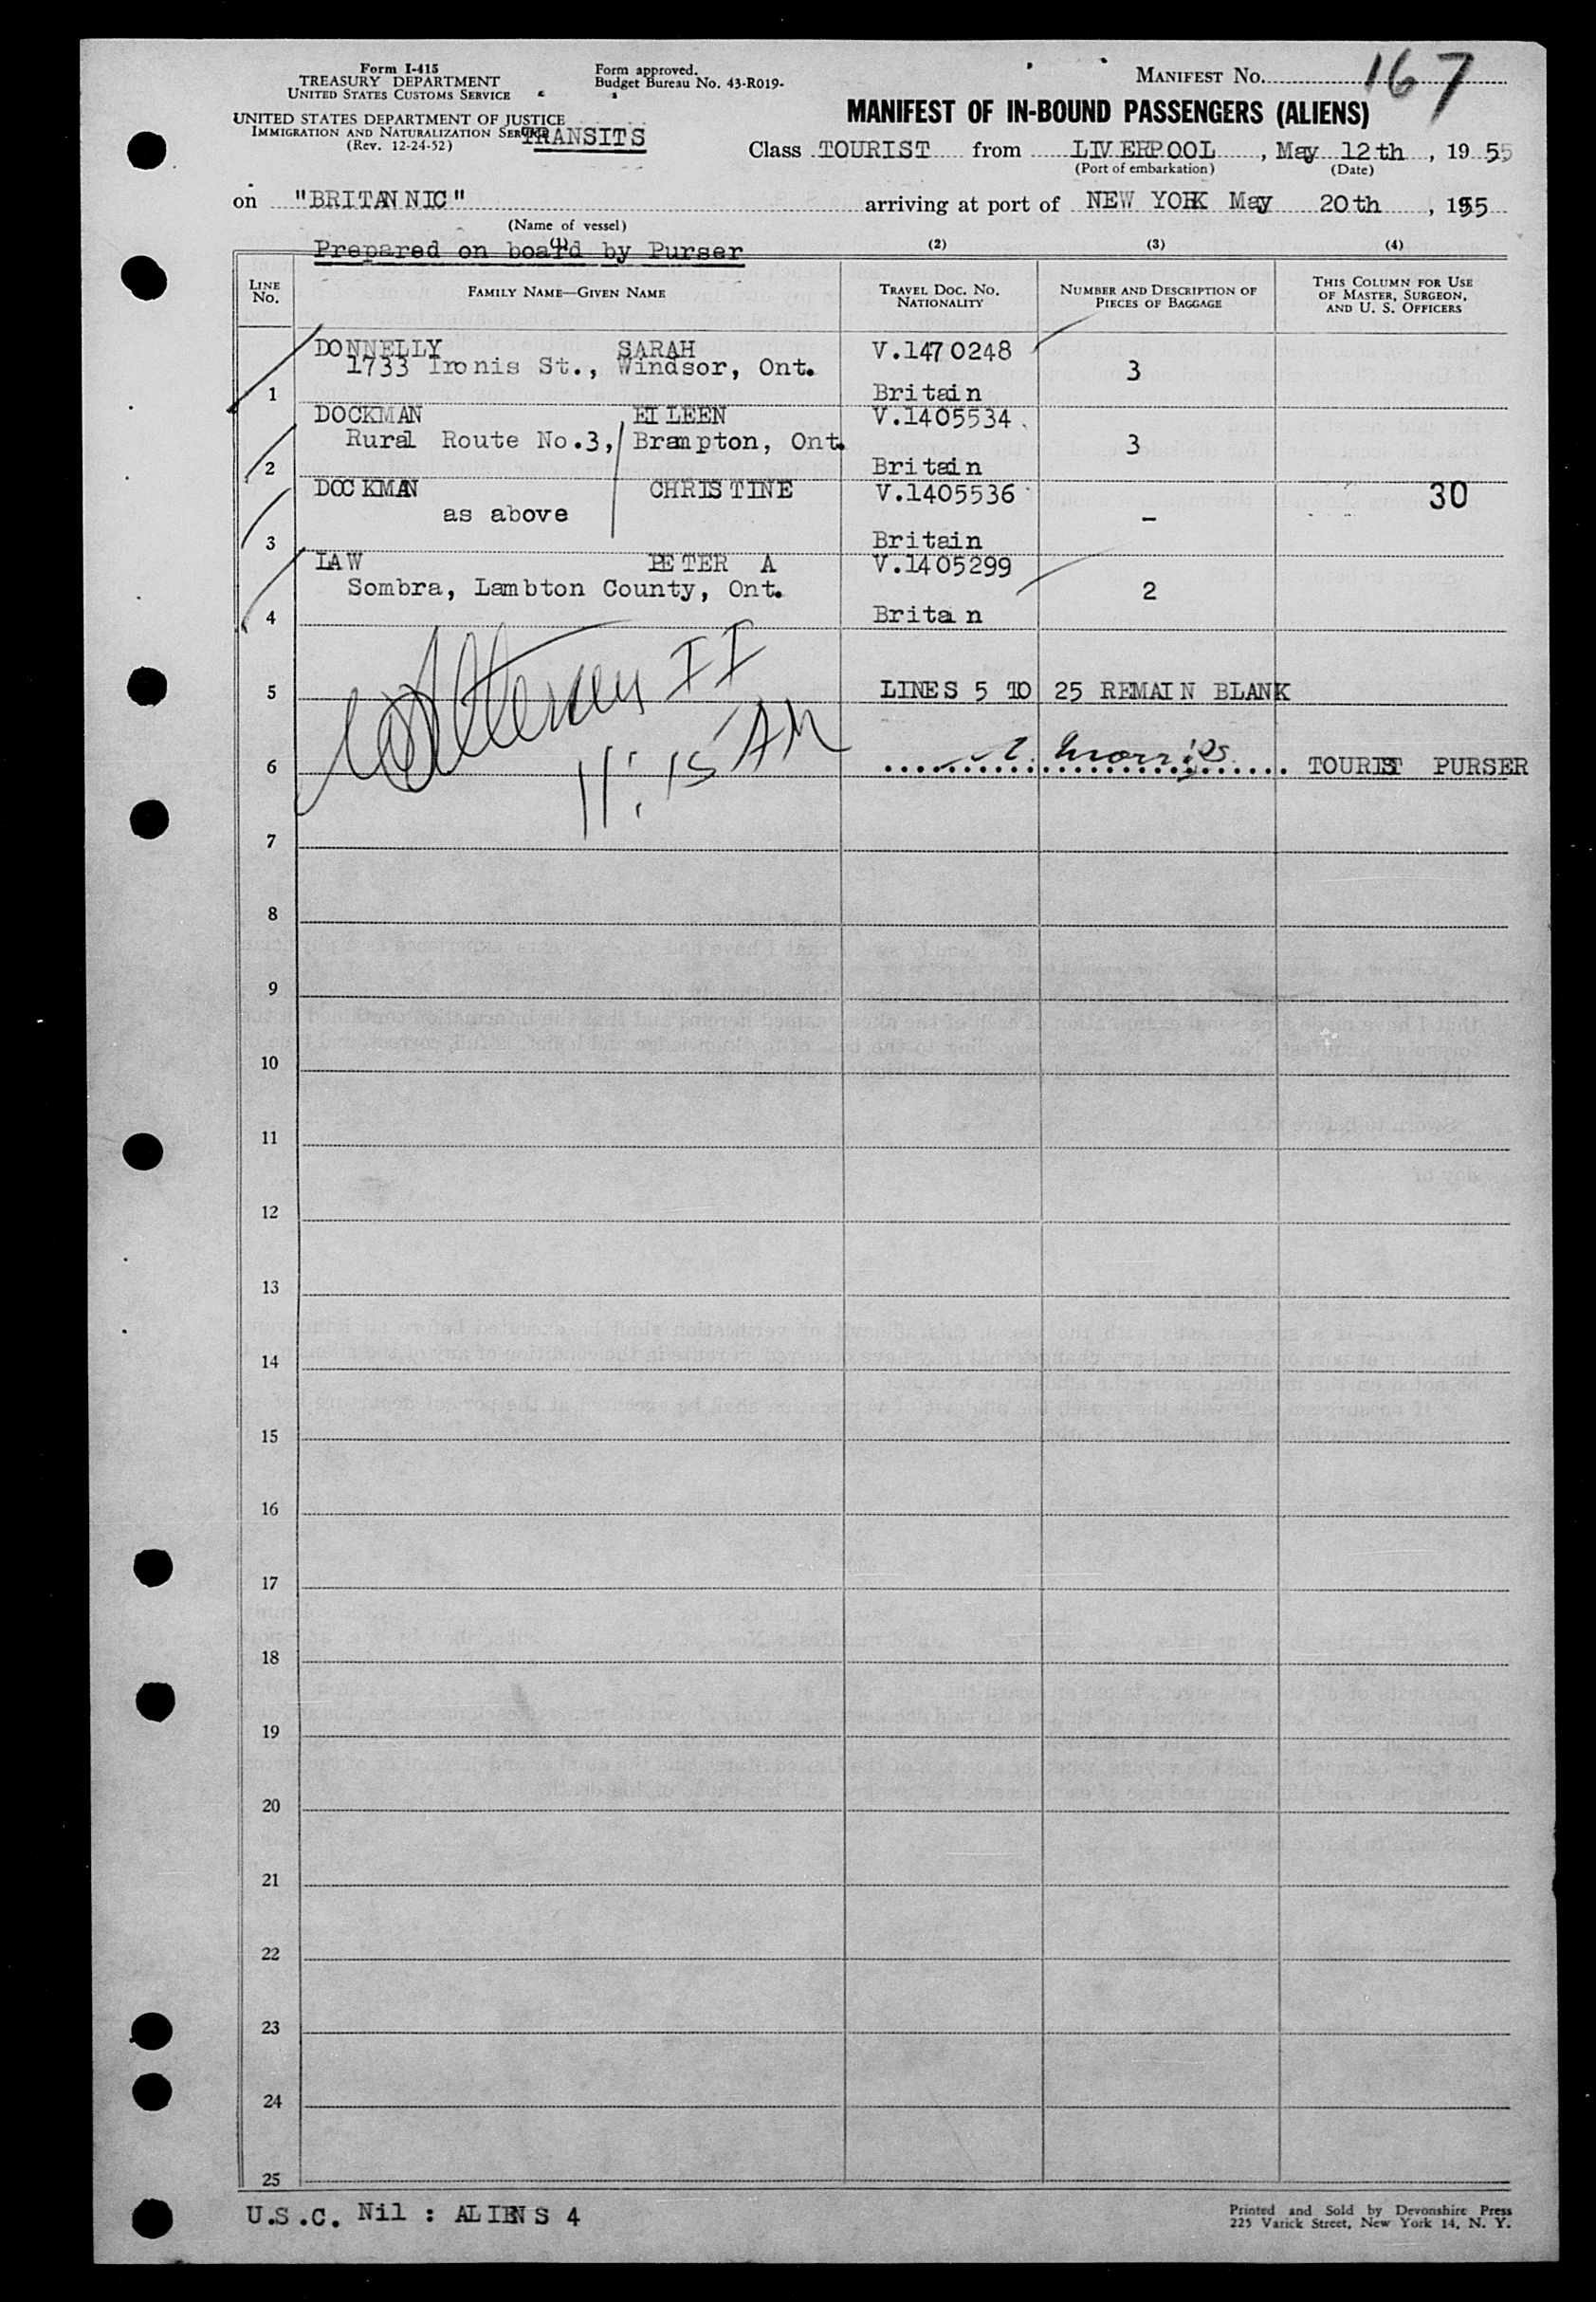 Form I-415
TREASURY DEPARTMENT
UNITED STATES CUSTOMS SERVICE
Form approved.
Budget Bureau No. 43-R019-
MANIFEST No. 167
UNITED STATES DEPARTMENT OF JUSTICE
IMMIGRATION AND NATURALIZATION SERVICE
(Rev. 12-24-52)
TRANSITS
MANIFEST OF IN-BOUND PASSENGERS (ALIENS)
Class TOURIST from LIVERPOOL, May 12th, 1955
(Port of embarkation) (Date)
on "BRITANNIC" arriving at port of NEW YORK May 20th, 1955
(Name of vessel)
Prepared on board by Purser
(1) (2) (3) (4)
LINE No. FAMILY NAME—GIVEN NAME TRAVEL DOC. No. NATIONALITY NUMBER AND DESCRIPTION OF PIECES OF BAGGAGE THIS COLUMN FOR USE OF MASTER, SURGEON, AND U. S. OFFICERS
DONNELLY SARAH V.1470248
1733 Ironis St., Windsor, Ont. 3
1 Britain
DOCKMAN EILEEN V.1405534
Rural Route No.3, Brampton, Ont. 3
2 Britain
DOCKMAN CHRISTINE V.1405536 30
as above –
3 Britain
LAW PETER A V.1405299
Sombra, Lambton County, Ont. 2
4 Britan
II
5 LINES 5 TO 25 REMAIN BLANK
11:15 AM
6 Morris TOURIST PURSER
7
8
9
10
11
12
13
14
15
16
17
18
19
20
21
22
23
24
25
U.S.C. Nil : ALIENS 4
Printed and Sold by Devonshire Press
225 Varick Street, New York 14, N. Y.